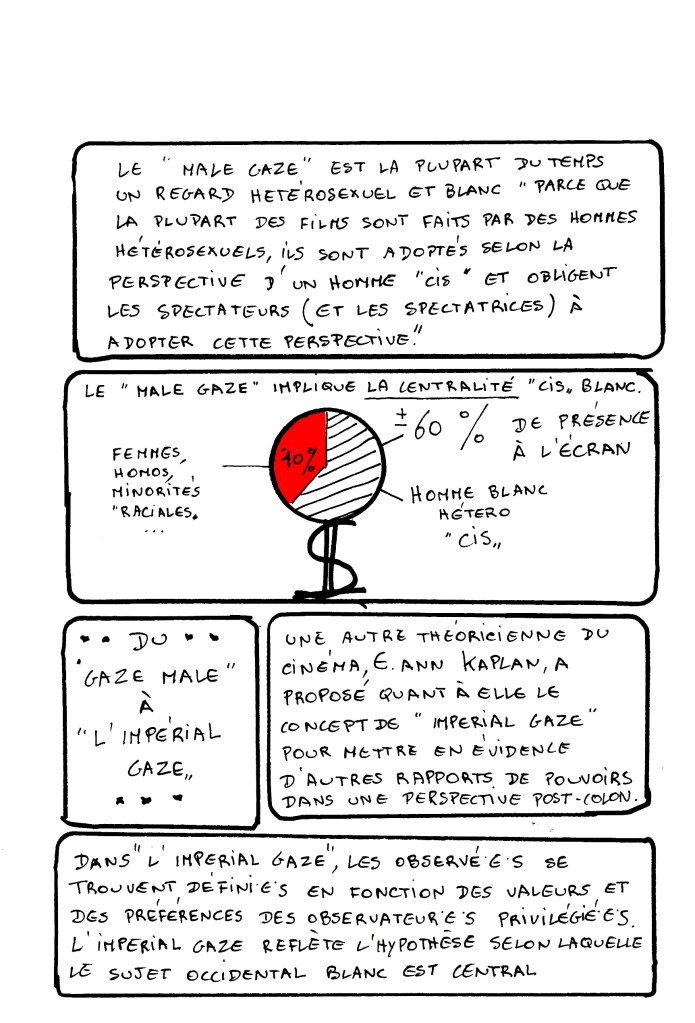 LE "MALE GAZE" EST LA PLUPART DU TEMPS
UN REGARD HETÉROSEXUEL ET BLANC "PARCE QUE
LA PLUPART DES FILMS SONT FAITS PAR DES HOMMES
HÉTÉROSEXUELS, ILS SONT ADOPTÉS SELON LA
PERSPECTIVE D'UN HOMME "CIS" ET OBLIGENT
LES SPECTATEURS (ET LES SPECTATRICES) À
ADOPTER CETTE PERSPECTIVE."
LE "MALE GAZE" IMPLIQUE LA CENTRALITÉ "CIS" BLANC.
± 60 % DE PRÉSENCE
À L'ÉCRAN
40%
FEMMES,
HOMOS,
MINORITÉS
"RACIALES.
...
HOMME BLANC
HÉTERO
"CIS"
DU
"GAZE MALE"
À
"L'IMPÉRIAL
GAZE"
UNE AUTRE THÉORICIENNE DU
CINÉMA, E. ANN KAPLAN, A
PROPOSÉ QUANT À ELLE LE
CONCEPT DE "IMPERIAL GAZE"
POUR METTRE EN ÉVIDENCE
D'AUTRES RAPPORTS DE POUVOIRS
DANS UNE PERSPECTIVE POST-COLON.
DANS "L'IMPERIAL GAZE", LES OBSERVÉ·E·S SE
TROUVENT DÉFINI·E·S EN FONCTION DES VALEURS ET
DES PRÉFÉRENCES DES OBSERVATEUR·E·S PRIVILÉGIÉ·E·S.
L'IMPERIAL GAZE REFLÈTE L'HYPOTHÈSE SELON LAQUELLE
LE SUJET OCCIDENTAL BLANC EST CENTRAL